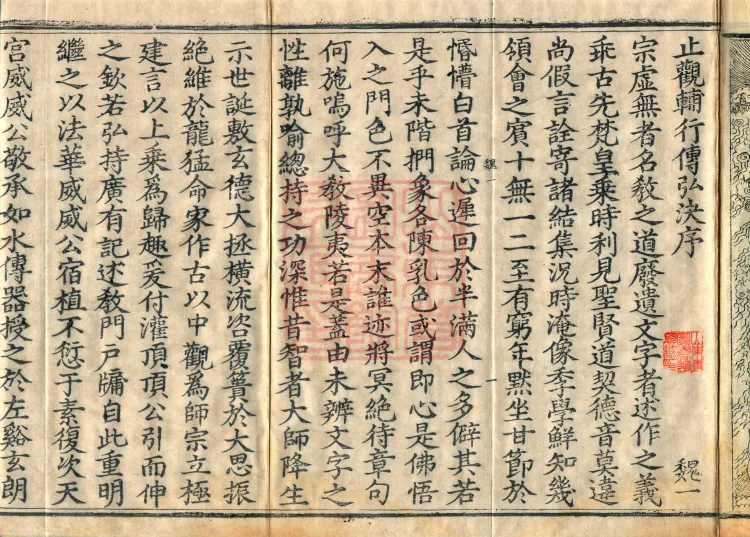 止觀輔行傳弘決序
魏一
宗虛無者名教之道廢遺文字者述作之義
乖古先梵皇乘時利見聖賢道契德音莫違
尚假言詮寄諸結集況時淹像季學鮮知幾
領會之賓十無一二至有窮年默坐甘節於
魏一
惛懵白首論心遲回於半滿人之多僻其若
是乎未階捫象各陳乳色或謂即心是佛悟
入之門色不異空本末誰迹將冥絕待章句
何施嗚呼大教陵夷若是蓋由未辨文字之
性離孰喻總持之功深惟昔智者大師降生
示世誕敷玄德大拯橫流咨覆簣於大思振
絕維於龍猛命家作古以中觀為師宗立極
建言以上乘為歸趣爰付灌頂頂公引而伸
之欽若弘持廣有記述教門戶牖自此重明
繼之以法華威威公宿植不愆于素復次天
宮威威公敬承如水傳器授之於左谿玄朗